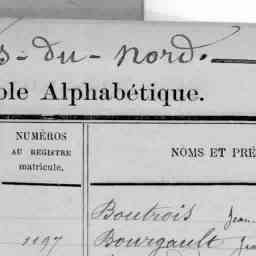 s-du-nord.
ble Alphabétique.
NUMÉROS
AU REGISTRE
matricule.
NOMS ET PRÉ
Boutrois Jean.
1197 Bourgault